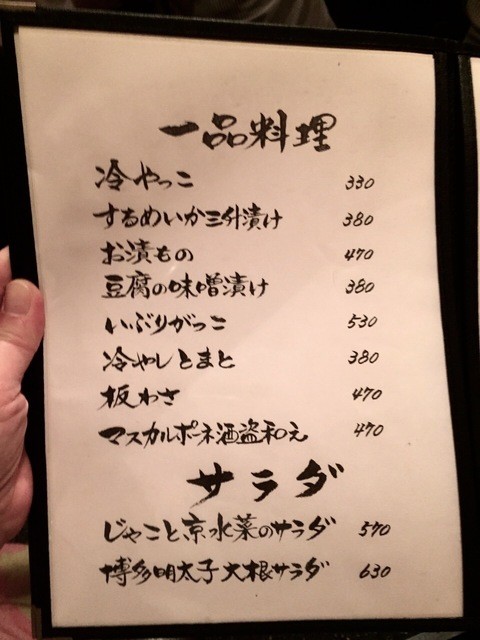 一品料理
冷やっこ 330
するめいか三升漬け 380
お漬もの 470
豆腐の味噌漬け 380
いぶりがっこ 530
冷やしとまと 380
板わさ 470
マスカルポーネ酒盗和え 470
サラダ
じゃこと京水菜のサラダ 570
博多明太子大根サラダ 630